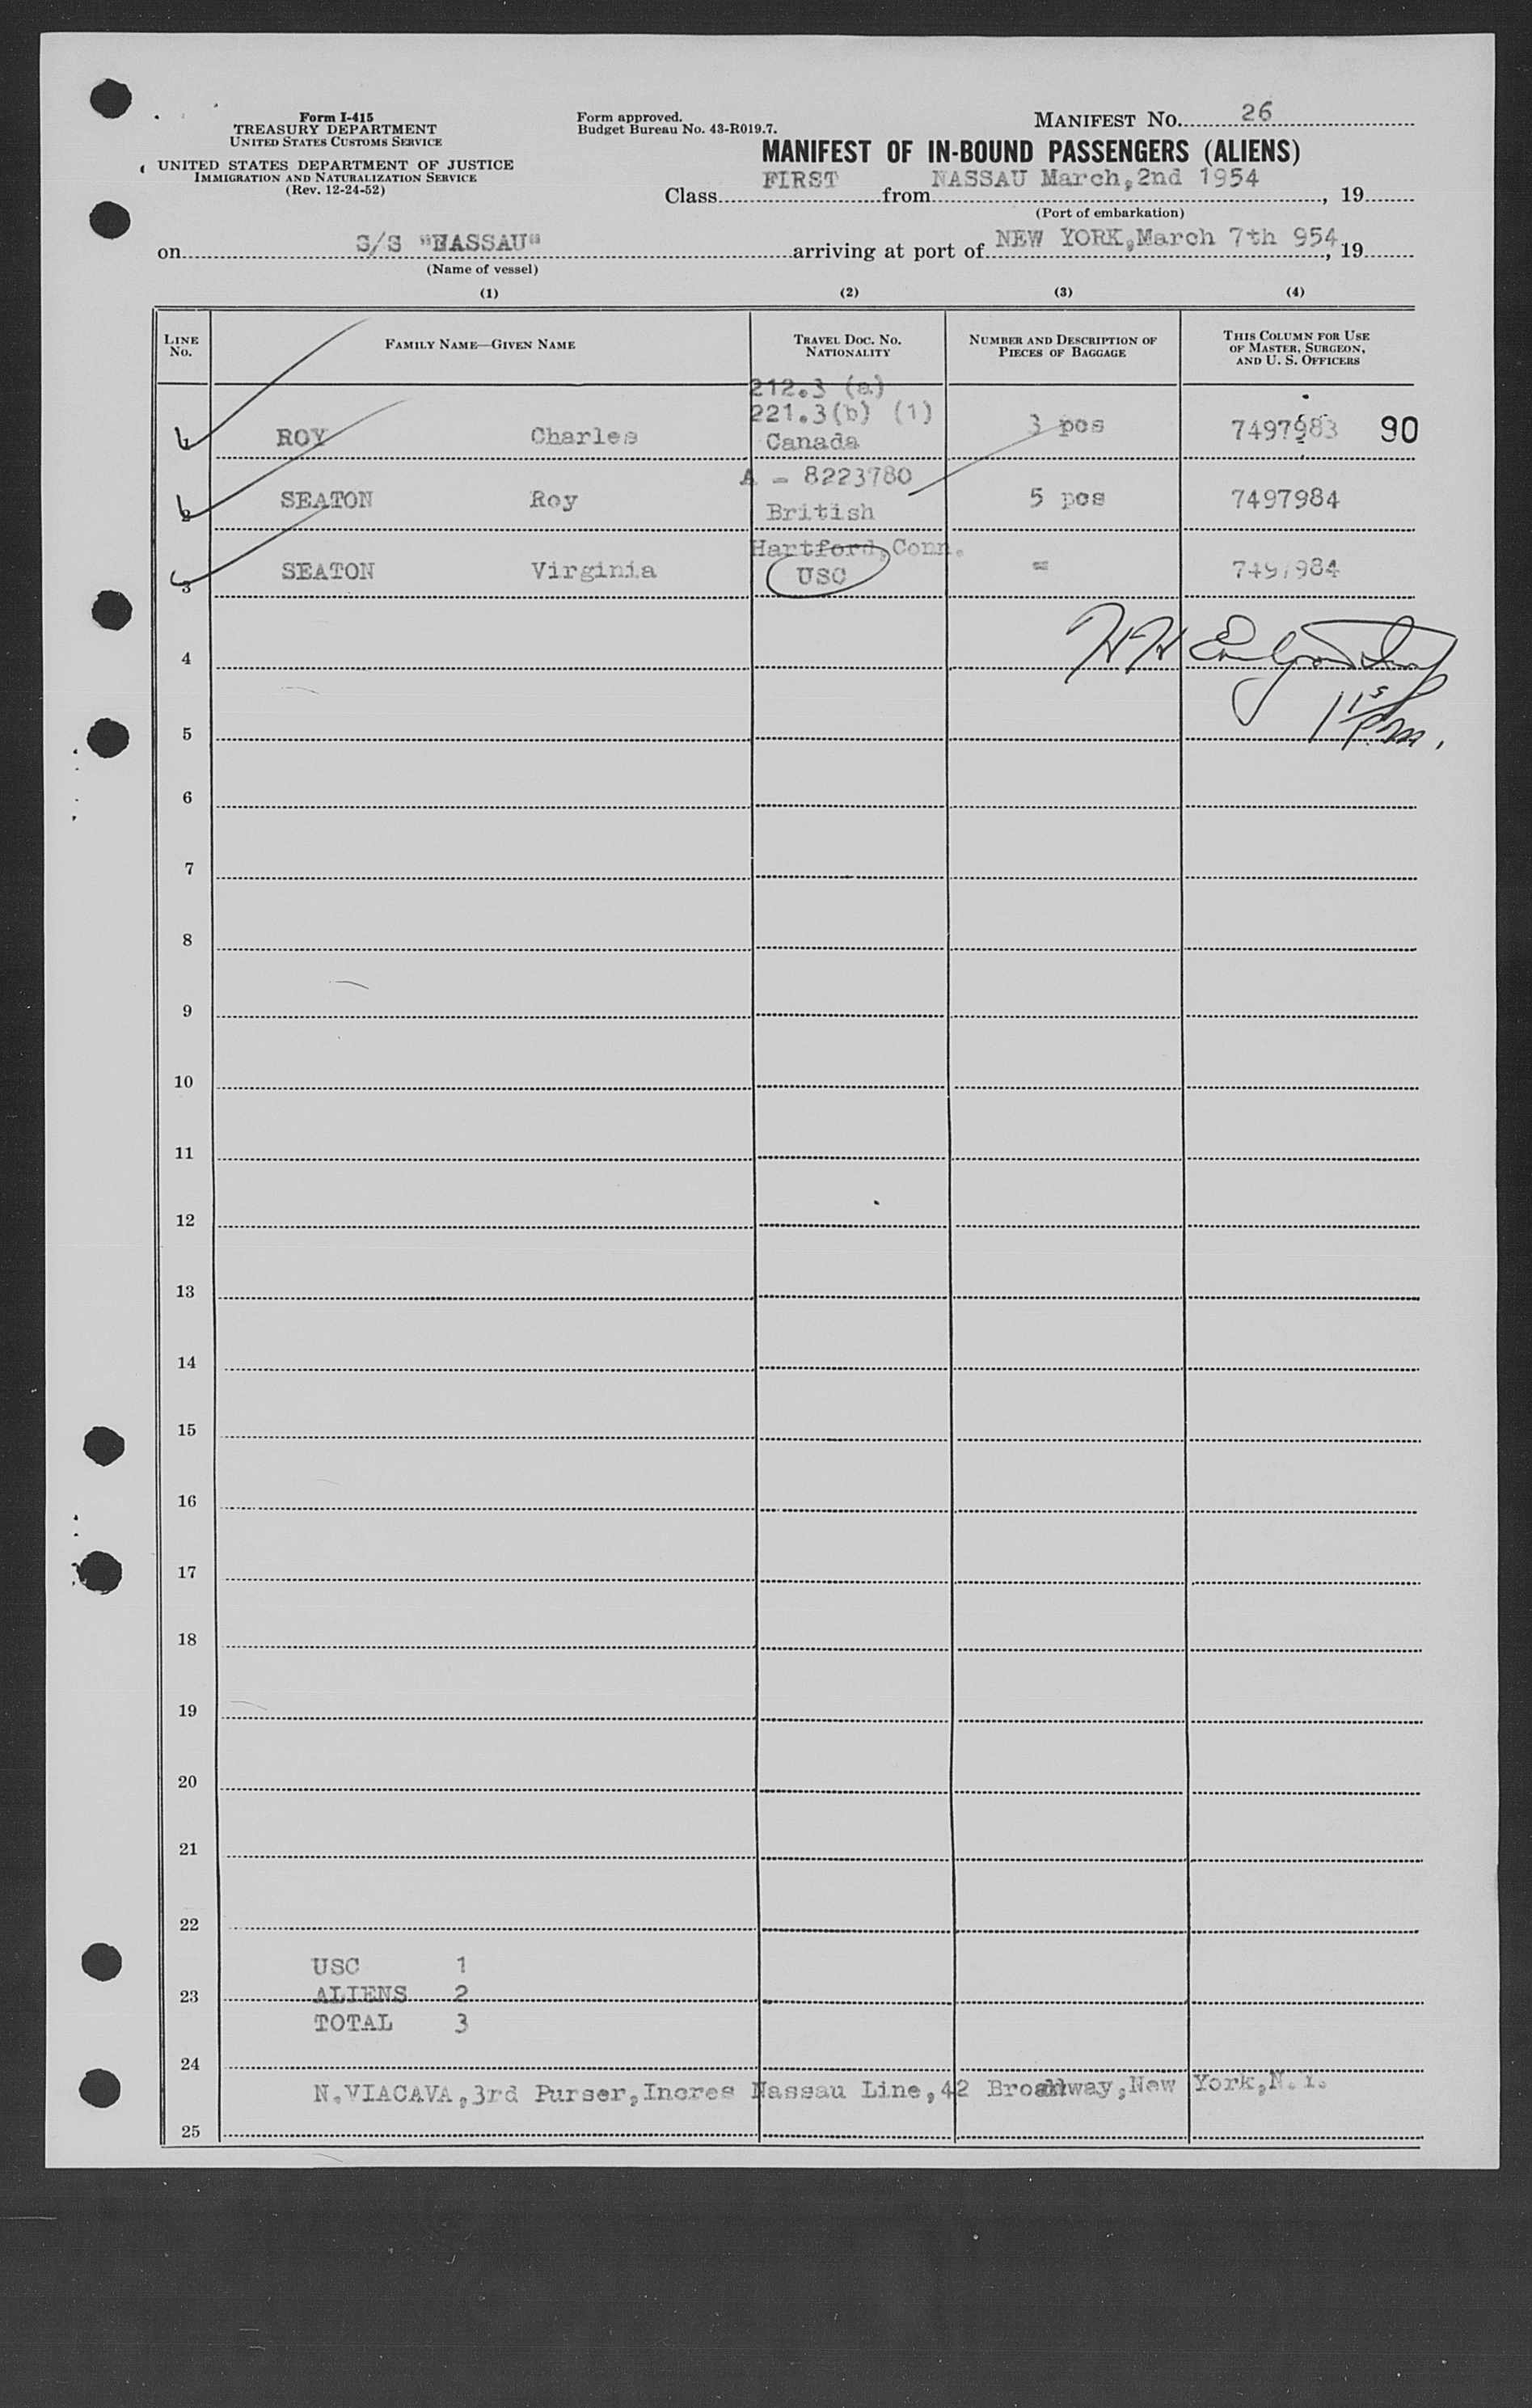 Form I-415
TREASURY DEPARTMENT
UNITED STATES CUSTOMS SERVICE
UNITED STATES DEPARTMENT OF JUSTICE
IMMIGRATION AND NATURALIZATION SERVICE
(Rev. 12-24-52)
Form approved.
Budget Bureau No. 43-R019.7.
MANIFEST NO. 26
MANIFEST OF IN-BOUND PASSENGERS (ALIENS)
Class FIRST from NASSAU March,2nd 1954, 19
(Port of embarkation)
on S/S "NASSAU" arriving at port of NEW YORK,March 7th 954, 19
(Name of vessel)
(1) (2) (3) (4)
LINE NO. FAMILY NAME—GIVEN NAME TRAVEL DOC. NO. NATIONALITY NUMBER AND DESCRIPTION OF PIECES OF BAGGAGE THIS COLUMN FOR USE OF MASTER, SURGEON, AND U. S. OFFICERS
212.3 (a)
221.3(b) (1)
1 ROY Charles Canada 3 pcs 7497983 90
A - 8223780
2 SEATON Roy British 5 pcs 7497984
Hartford,Conn.
3 SEATON Virginia USC = 7497984
4
5 pm.
6
7
8
9
10
11
12
13
14
15
16
17
18
19
20
21
22
USC 1
23 ALIENS 2
TOTAL 3
24
N.VIACAVA,3rd Purser,Incres Nassau Line,42 Broadway,New York,N.Y.
25